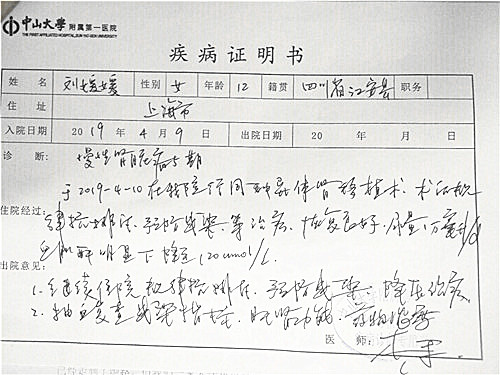 中山大学 附属第一医院
THE FIRST AFFILIATED HOSPITAL, SUN YAT-SEN UNIVERSITY
疾病证明书
姓名 刘媛媛 性别 女 年龄 12 籍贯 四川省江安县 职务
住址 上海市
入院日期 2019年4月9日 出院日期 20 年 月 日
诊断: 慢性肾脏病5期
住院经过: 于2019-4-10在我院行同种异体肾移植术。术后抗
排斥、预防感染等治疗,恢复良好,尿量
血肌酐明显下降至120umol/L.
出院意见:
1. 继续住院抗排斥、预防感染、降压治疗
2. 抽血复查感染指标、肝肾功能、药物浓度
医师: